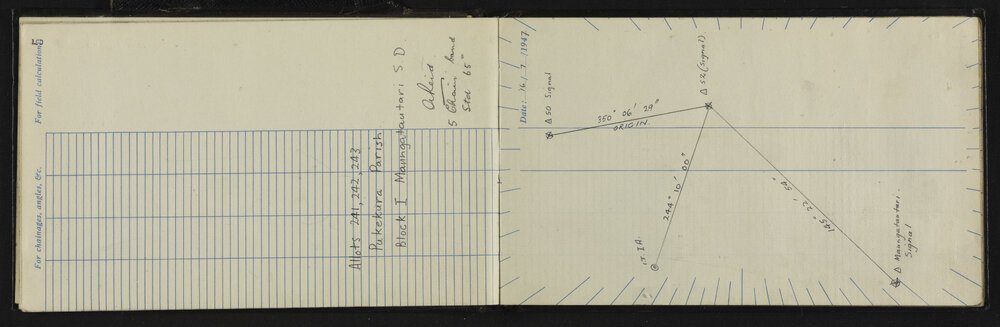 5
For field calculations
For chainages, angles, &c.
Allots 241, 242, 243
Pukekura Parish
Block I Maungatautari S.D
A Reid
5 Chain band
Std 65°
Date: 16/7/1947
Δ 50 Signal
Δ 52 (Signal)
350° 06' 29"
ORIGIN.
244° 10' 00"
I.T. I A
Δ Maungatautari.
Signal